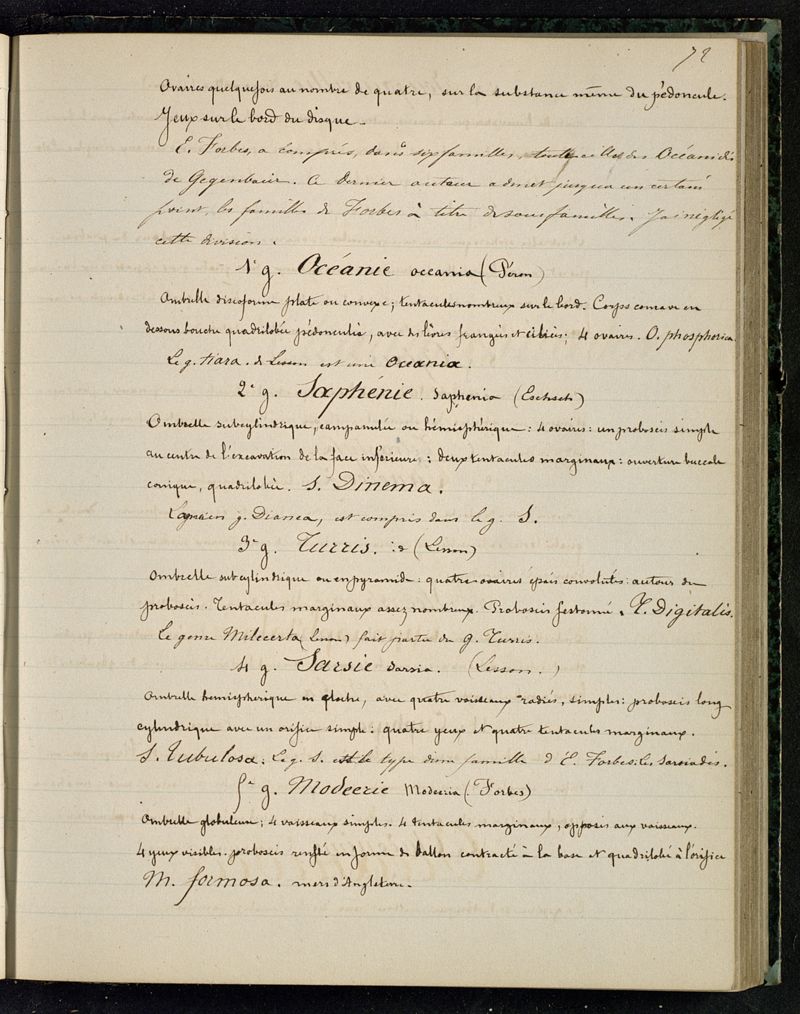 72
Ovaires quelquefois au nombre de quatre, sur la substance même du pédoncule.
Yeux sur le bord du disque.
E. Forbes, a compris, dans six familles, toutes celles des Océanidés
de Gegenbaür. Ce dernier auteur admet jusqu'a un certain
point, les familles de Forbes à titre de sous familles. J'ai négligé
cette division.
1r g. Océanie oceania (Péron)
Ombrelle discoforme plate ou convexe; tentacules nombreux sur le bord. Corps concave en
dessous bouche quadrilobée pédonculée, avec des lèvres frangées et ciliées; 4 ovaires. O. phosphorica
Le g. tiara. de Lesson est une Oceania.
2e g. Saphenie. saphenia (Eschsch)
Ombrelle subcylindrique, campanulée ou hémisphérique: 4 ovaires: un proboscis simple
au centre de l'excavation de la face inférieure: deux tentacules marginaux: ouverture buccale
conique, quadrilobée. S. Dinema.
L'ancien g. Dianea, est compris dans le g. S.
3e g. Turris. id (Lesson)
Ombrelle subcylindrique ou en pyramide: quatre ovaires épais convolutés: autour du
proboscis. Tentacules marginaux assez nombreux. Proboscis festonné. T. Digitalis.
Le genre Milecerta (Lesson) fait partie du g. Turris.
4 g. Sarsie sarsia. (Lesson.)
Ombrelle hemispherique en cloche, avec quatre vaisseaux radiés, simples: proboscis long
cylindrique avec un orifice simple: quatre yeux et quatre tentacules marginaux.
S. Tubulosa: Le g. S. est le type d'une famille d'E. Forbes: les Sarsiadés.
5e g. Modeerie Modeeria (Forbes)
Ombrelle globuleuse; 4 vaisseaux simples. 4 tentacules marginaux, opposés aux vaisseaux.
4 yeux visibles. proboscis renflé en forme de ballon contracté à la base et quadrilobé à l'orifice
M. formosa. mers d'Angleterre.